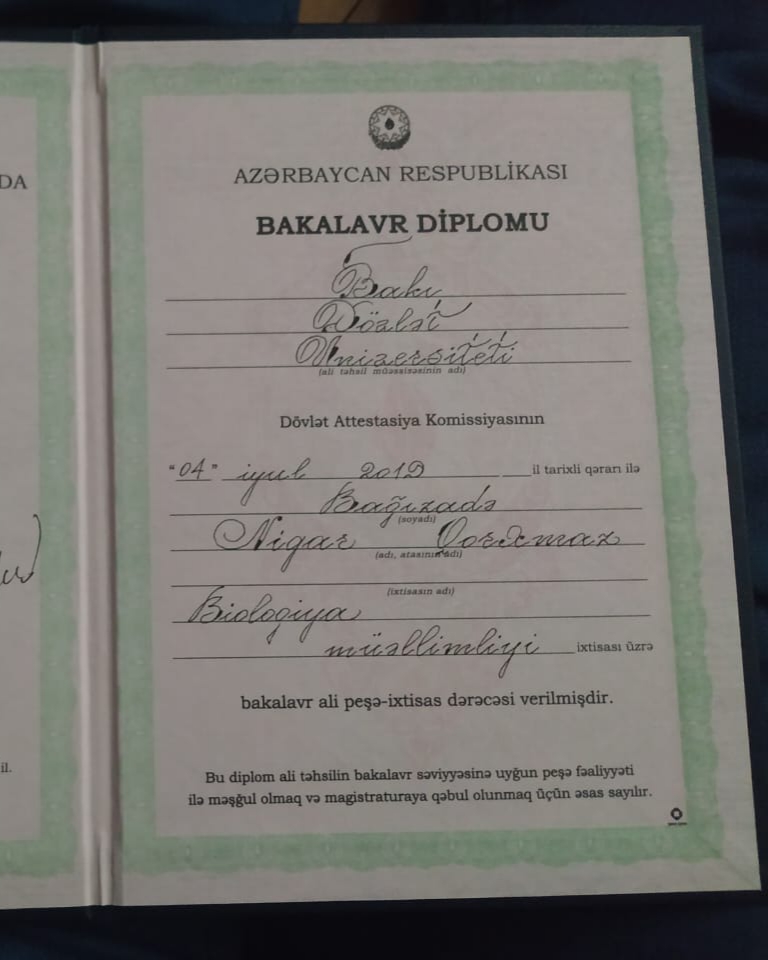 DA
AZƏRBAYCAN RESPUBLİKASI
BAKALAVR DİPLOMU
Bakı
Dövlət
Universiteti
(ali təhsil müəssisəsinin adı)
Dövlət Attestasiya Komissiyasının
"04" iyul 2019 il tarixli qərarı ilə
Bağızadə
(soyadı)
Nigar Qorxmaz
(adı, atasının adı)
(ixtisasın adı)
Biologiya
müəllimliyi ixtisası üzrə
bakalavr ali peşə-ixtisas dərəcəsi verilmişdir.
il.
Bu diplom ali təhsilin bakalavr səviyyəsinə uyğun peşə fəaliyyəti
ilə məşğul olmaq və magistraturaya qəbul olunmaq üçün əsas sayılır.